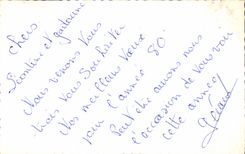 chers
Nous venons Vous
Vous Souhaiter
Nos meilleurs Vœux
pour l'année 80.
Peut être aurons nous
l'occasion de vous voir
cette année
Gérard